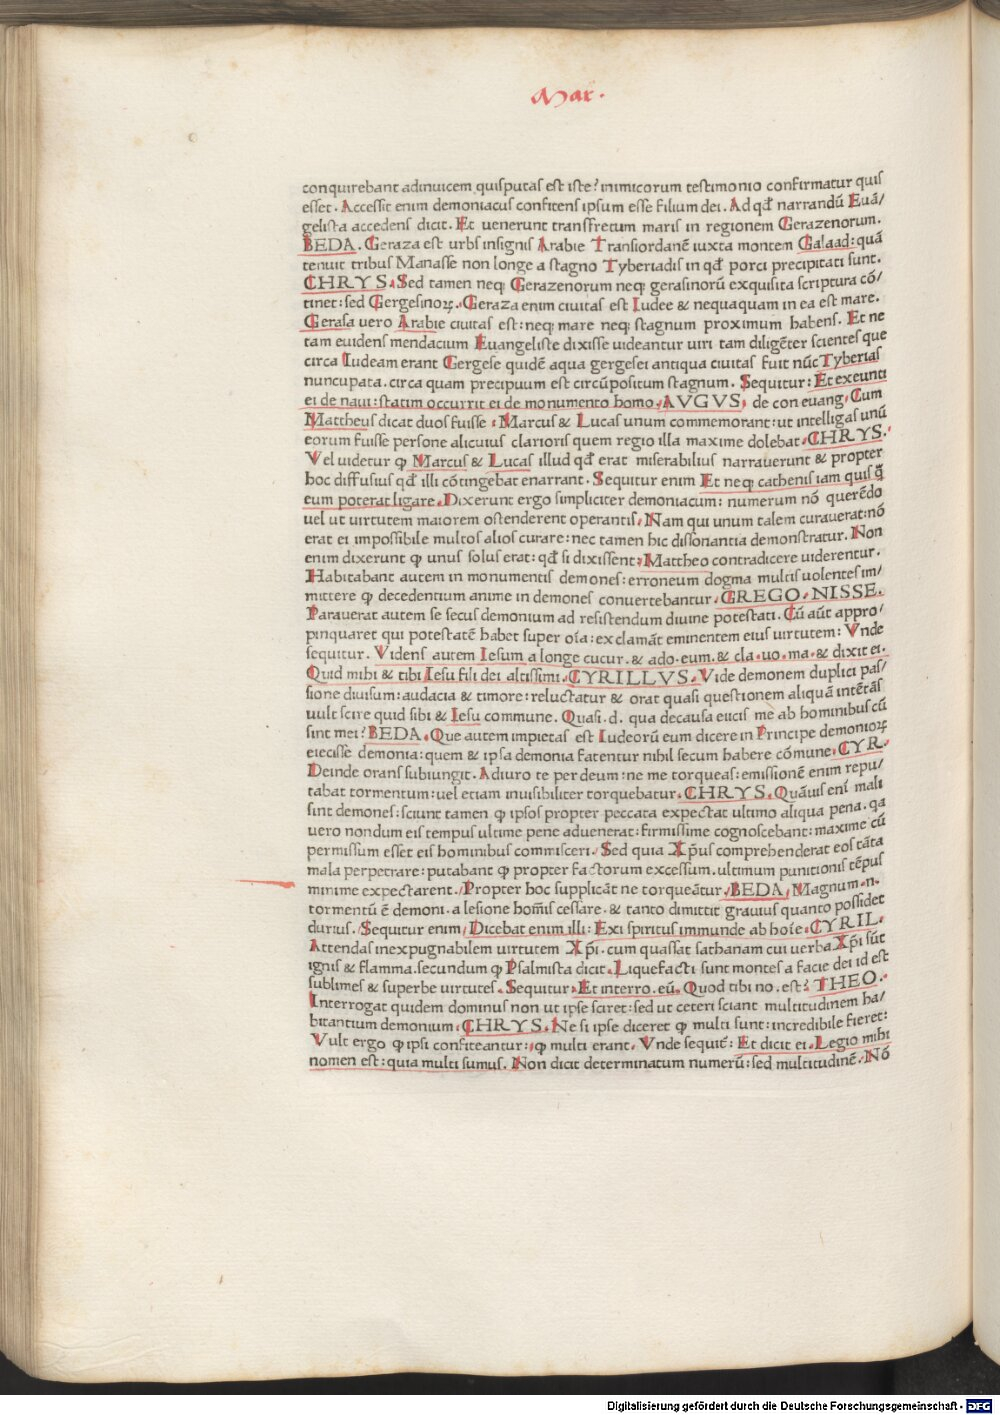 Mar.
conquirebant adinuicem quisputas est iste? inimicorum testimonio confirmatur quis
esset. Accessit enim demoniacus confitens ipsum esse filium dei. Ad qđ narrandū Euā/
gelista accedens dicit. Et uenerunt transfretum maris in regionem Gerazenorum.
BEDA. Geraza est urbs insignis Arabie Transiordanē iuxta montem Galaad: quā
tenuit tribus Manasse non longe a stagno Tyberiadis in qđ porci precipitati sunt.
CHRYS. Sed tamen neqꝫ Gerazenorum neqꝫ gerasinorū exquisita scriptura cō/
tinet: sed Gergesinoꝝ. Geraza enim ciuitas est Iudee & nequaquam in ea est mare.
Gerasa uero Arabie ciuitas est: neqꝫ mare neqꝫ stagnum proximum habens. Et ne
tam euidens mendacium Euangeliste dixisse uideantur uiri tam diligēter scientes que
circa Iudeam erant Gergese quidē aqua gergesei antiqua ciuitas fuit nūc Tyberias
nuncupata. circa quam precipuum est circūpositum stagnum. Sequitur: Et exeunti
ei de naui: statim occurrit ei de monumento homo. AVGVS. de con euang. Cum
Mattheus dicat duos fuisse. Marcus & Lucas unum commemorant: ut intelligas unū
eorum fuisse persone alicuius clarioris quem regio illa maxime dolebat. CHRYS.
Vel uidetur ꝙ Marcus & Lucas illud qđ erat miserabilius narrauerunt & propter
hoc diffusius qđ illi cōtingebat enarrant. Sequitur enim Et neqꝫ cathenis iam quisq̄
eum poterat ligare. Dixerunt ergo simpliciter demoniacum: numerum nō querēdo
uel ut uirtutem maiorem ostenderent operantis. Nam qui unum talem curauerat: nō
erat ei impossibile multos alios curare: nec tamen hic dissonantia demonstratur. Non
enim dixerunt ꝙ unus solus erat: qđ si dixissent: Mattheo contradicere uiderentur.
Habitabant autem in monumentis demones: erroneum dogma multis uolentes im/
mittere ꝙ decedentium anime in demones conuertebantur. GREGO. NISSE.
Parauerat autem se secus demonium ad resistendum diuine potestati. Cū aūt appro/
pinquaret qui potestatē habet super oīa: exclamāt eminentem eius uirtutem: Vnde
sequitur. Videns autem Iesum a longe cucur. & ado. eum. & cla. uo. ma. & dixit ei.
Quid mihi & tibi Iesu fili dei altissimi. CYRILLVS. Vide demonem duplici pas/
sione diuisum: audacia & timore: reluctatur & orat quasi questionem aliquā intētās
uult scire quid sibi & Iesu commune. Quasi. d. qua decausa eiicis me ab hominibus cū
sint mei? BEDA. Que autem impietas est Iudeorū eum dicere in Principe demonioꝝ
eiecisse demonia: quem & ipsa demonia fatentur nihil secum habere cōmune. CYR.
Deinde orans subiungit. Adiuro te per deum: ne me torqueas: emissionē enim repu/
tabat tormentum: uel etiam inuisibiliter torquebatur. CHRYS. Quāuis eni mali
sint demones: sciunt tamen ꝙ ipsos propter peccata expectat ultimo aliqua pena. qa
uero nondum eis tempus ultime pene aduenerat: firmissime cognoscebant: maxime cū
permissum esset eis hominibus commisceri. Sed quia Xp̄us comprehenderat eos tāta
mala perpetrare: putabant ꝙ propter factorum excessum. ultimum punitionis tēpus
minime expectarent. Propter hoc supplicāt ne torqueātur. BEDA. Magnum. n.
tormentū ē demoni. a lesione hoīnis cessare. & tanto dimittit grauius quanto possidet
durius. Sequitur enim. Dicebat enim illi: Exi spiritus immunde ab hoīe. CYRIL.
Attendas inexpugnabilem uirtutem Xp̄i. cum quassat sathanam cui uerba Xp̄i sūt
ignis & flamma. secundum ꝙ Psalmista dicit. Liquefacti sunt montes a facie dei id est
sublimes & superbe uirtutes. Sequitur. Et interro. eū. Quod tibi no. est? THEO.
Interrogat quidem dominus non ut ipse sciret: sed ut ceteri sciant multitudinem ha/
bitantium demonium. CHRYS. Ne si ipse diceret ꝙ multi sunt: incredibile fieret:
Vult ergo ꝙ ipsi confiteantur: ꝙ multi erant. Vnde sequit̄: Et dicit ei. Legio mihi
nomen est: quia multi sumus. Non dicit determinatum numerū: sed multitudinē. Nō
Digitalisierung gefördert durch die Deutsche Forschungsgemeinschaft - DFG